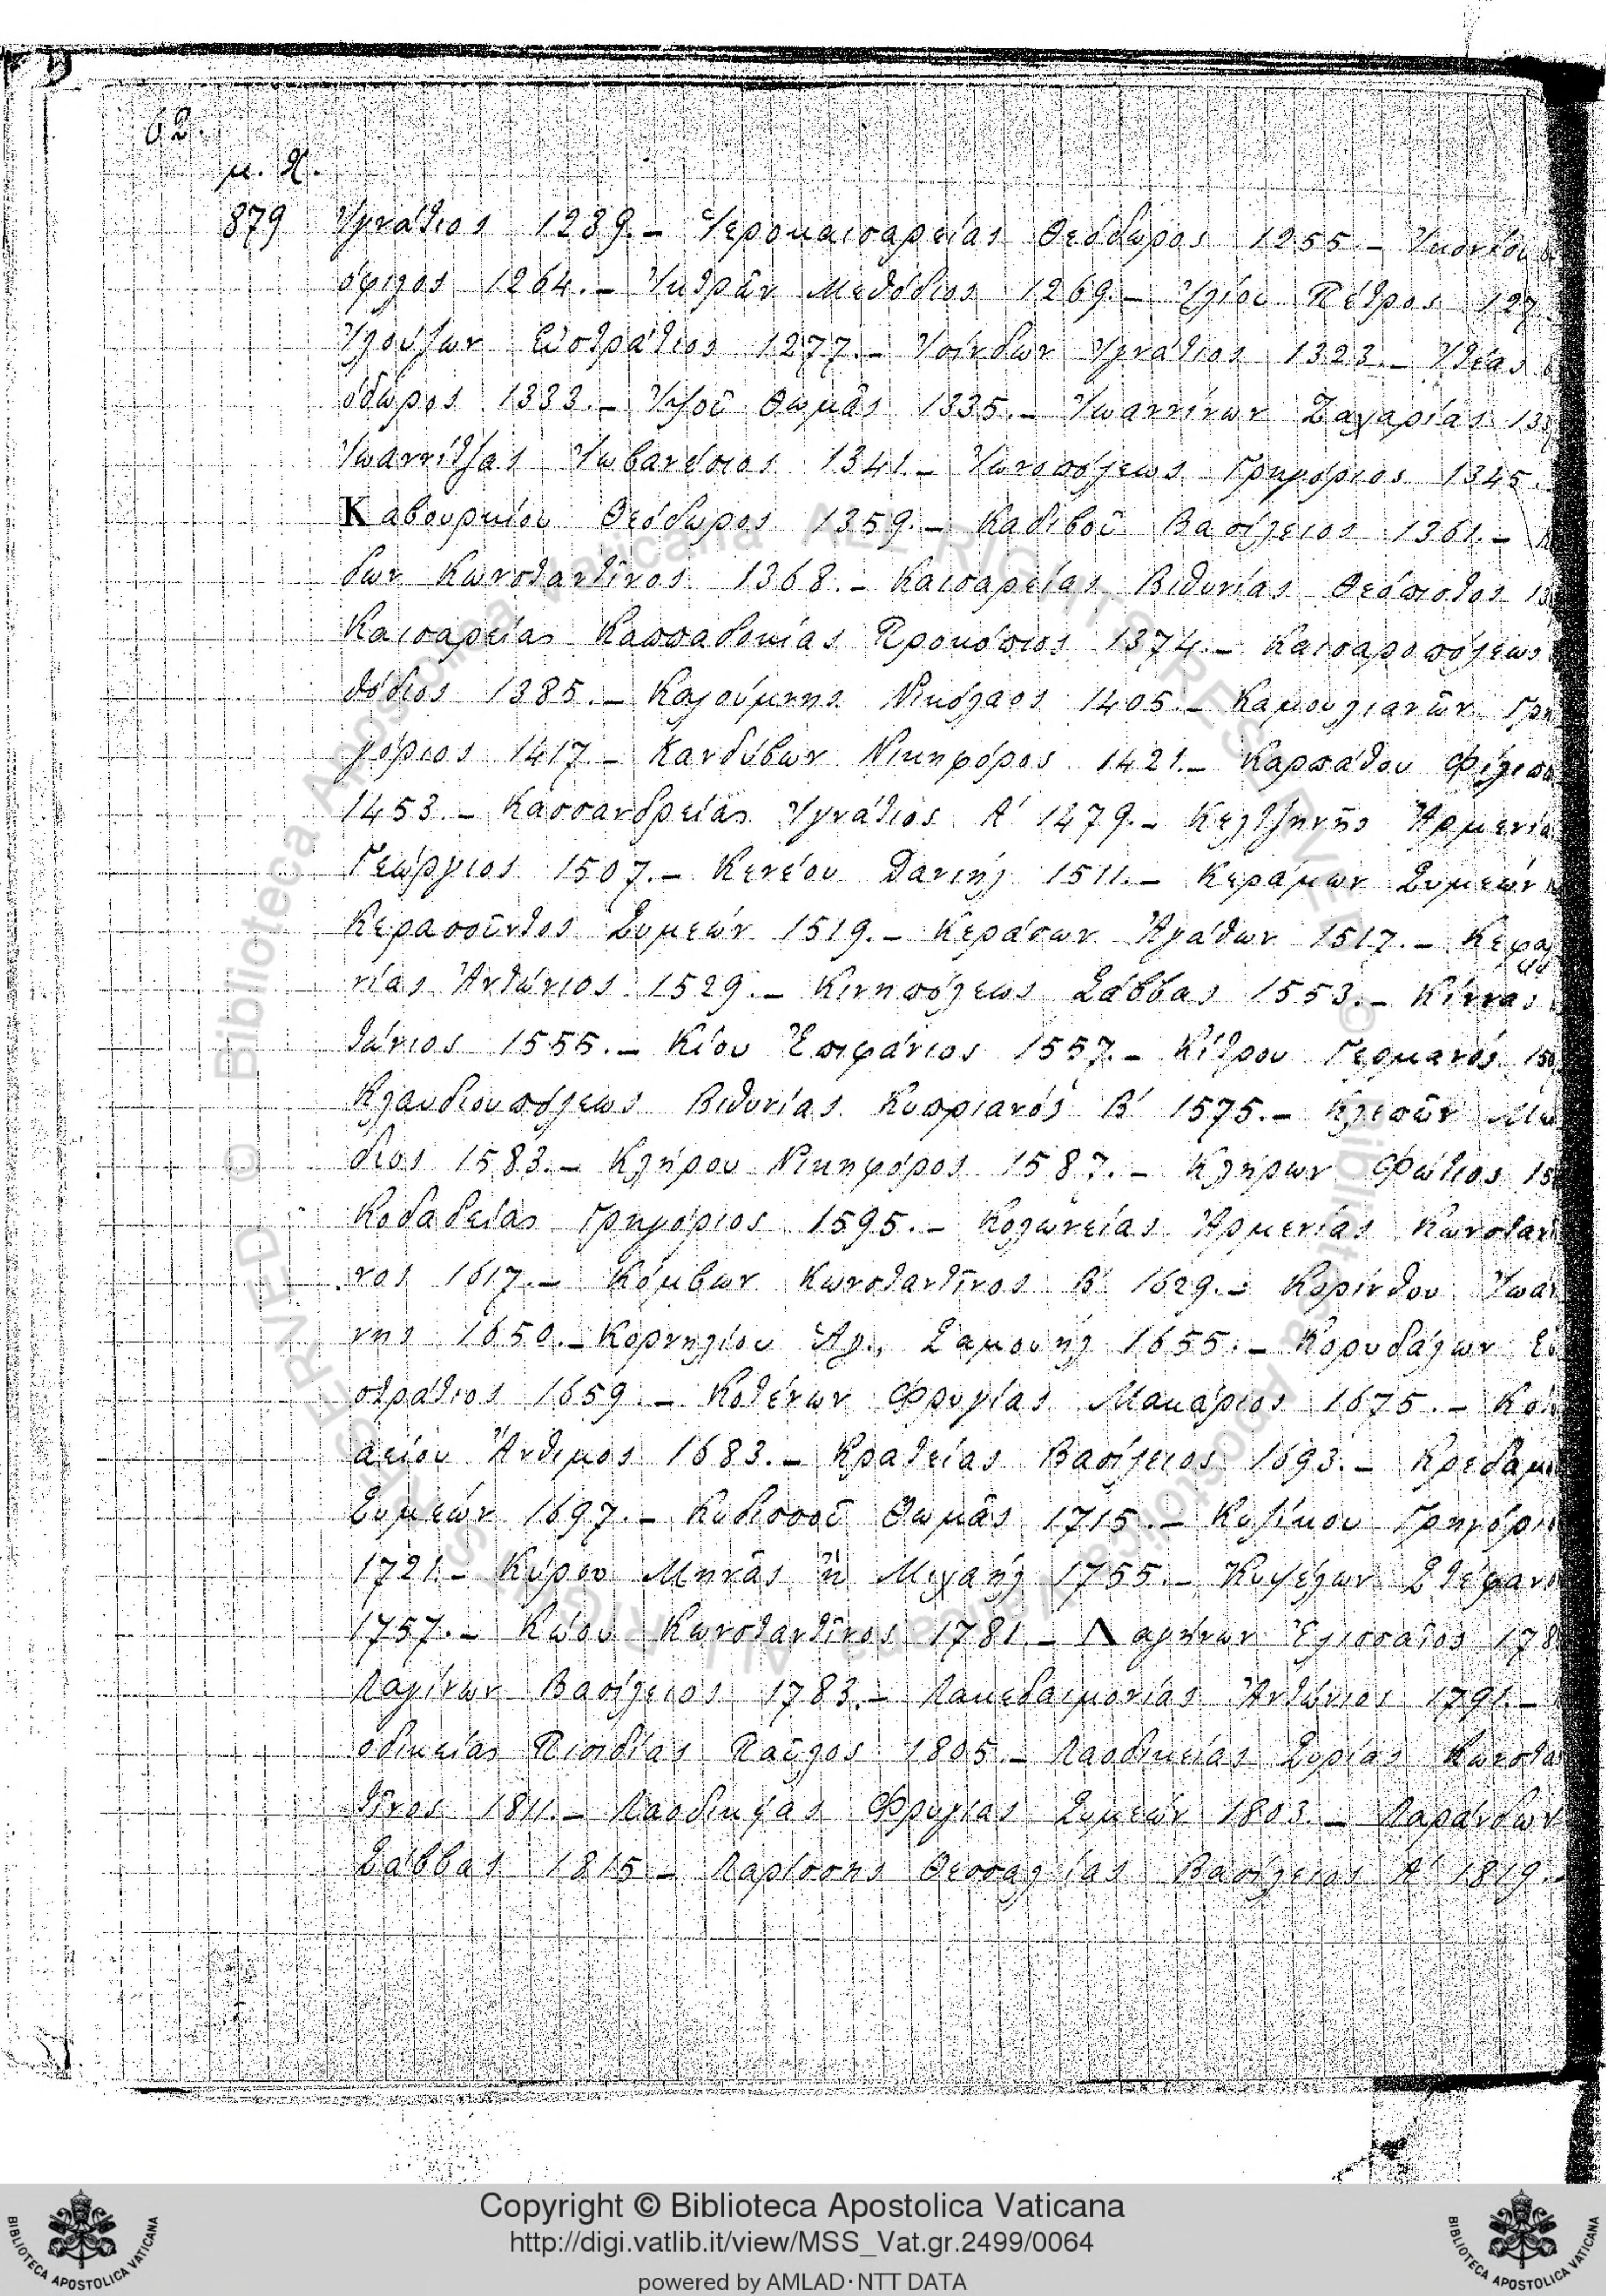 62.
μ. Χ.
879 Ἰγνάτιος 1289.– Ἱεροκαισαρείας Θεόδωρος 1255.– Ἰκονίου
όφιλος 1264.– Μεθόδιος 1269.– Ἰλίου Πέτρος 127
Ἰλούζων Εὐστράτιος 1277.– Ἰσίνδων Ἰγνάτιος 1323.–
όδωρος 1333.– Θωμᾶς 1335.– Ἰωαννίνων Ζαχαρίας
Ἰωαννίτζας 1341.– Ἰωνοπόλεως Γρηγόριος 1345.
Καβουρκίου Θεόδωρος 1359.– Καδιβοῦ Βασίλειος 1361.–
δων Κωνσταντῖνος 1368.– Καισαρείας Βιθυνίας Θεόπιστος
Καισαρείας Καππαδοκίας Προκόπιος 1374.– Καισαροπόλεως
θόδιος 1385.– Καλούμνης Νικόλαος 1405.– Καμουλιανῶν Γρη
γόριος 1417.– Κανδύβων Νικηφόρος 1421.– Καρπάθου Φίλιππο
1453.– Κασσανδρείας Ἰγνάτιος Α' 1479.– Κελτζηνῆς Ἀρμενία
Γεώργιος 1507.– Κενέου Δανιήλ 1511.– Κεράμων Συμεών
Κερασοῦντος Συμεών 1519.– Κεράσων Ἀγάθων 1517.– Κεφαλ
νίας Ἀντώνιος 1529.– Κινηπόλεως Σάββας 1553.– Κίννας
τώνιος 1555.– Κίου Ἐπιφάνιος 1557.– Κίτρου Γερμανός
Κλαυδιουπόλεως Βιθυνίας Κυπριανός Β' 1575.–
διος 1583.– Κλήρου Νικηφόρος 1587.– Κλήρων Φώτιος
Κοδαδείας Γρηγόριος 1595.– Κολωνείας Ἀρμενίας Κωνσταν
νος 1617.– Κόμβων Κωνσταντῖνος Β' 1629.– Κορίνθου Ἰωάν
νης 1650.– Κορνηλίου Ἁγ., Σαμουήλ 1655.– Κορυδάλων Εὐ
στράτιος 1659.– Κοτένων Φρυγίας Μακάριος 1675.–
αείου Ἄνθιμος 1683.– Κρατείας Βασίλειος 1693.–
Συμεών 1697.– Κυδισσοῦ Θωμᾶς 1715.– Κυζίκου Γρηγόριο
1721.– Κύρου Μηνᾶς ἢ Μιχαήλ 1755.– Κυψέλων Στέφανο
1757.– Κώου Κωνσταντῖνος 1781.– Λαγήνων Ἐλισσαῖος 178
Λαγίνων Βασίλειος 1783.– Λακεδαιμονίας Ἀντώνιος 1791.–
οδικείας Πισιδίας Παῦλος 1805.– Λαοδικείας Συρίας Κωνστα
τῖνος 1811.– Λαοδικείας Φρυγίας Συμεών 1803.– Λαράνδων
Σάββας 1815.– Λαρίσσης Θεσσαλίας Βασίλειος Α' 1819.–
Copyright © Biblioteca Apostolica Vaticana
http://digi.vatlib.it/view/MSS_Vat.gr.2499/0064
powered by AMLAD·NTT DATA